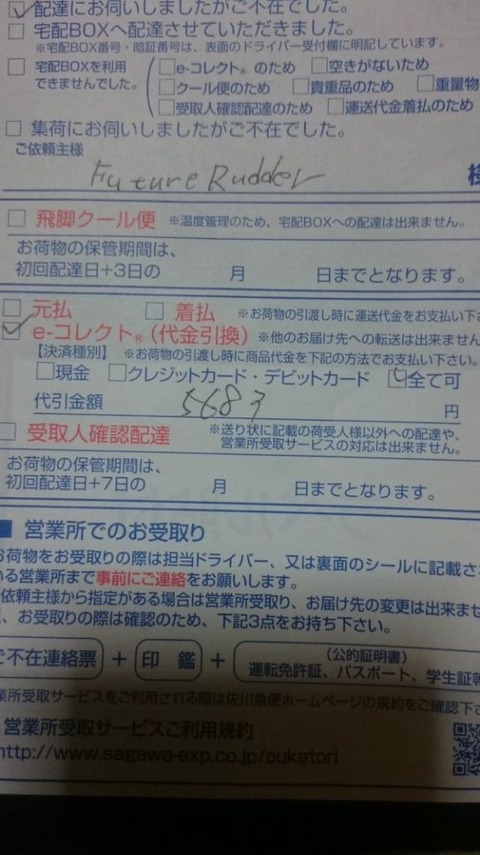 配達にお伺いしましたがご不在でした。
宅配BOXへ配達させていただきました。
※宅配BOX番号・暗証番号は、表面のドライバー受付欄に明記しています。
宅配BOXを利用できませんでした。
e-コレクト®のため 空きがないため
クール便のため 貴重品のため 重量物
受取人確認配達のため 運送代金着払のため
集荷にお伺いしましたがご不在でした。
ご依頼主様
Future Rudder 様
飛脚クール便 ※温度管理のため、宅配BOXへの配達は出来ません。
お荷物の保管期間は、
初回配達日+3日の 月 日までとなります。
元払 着払 ※お荷物の引渡し時に運送代金をお支払い下さ
e-コレクト®(代金引換) ※他のお届け先への転送は出来ません
【決済種別】 ※お荷物の引渡し時に商品代金を下記の方法でお支払い下さい。
現金 クレジットカード・デビットカード 全て可
代引金額 5687 円
受取人確認配達 ※送り状に記載の荷受人様以外への配達や、
営業所受取サービスの対応は出来ません。
お荷物の保管期間は、
初回配達日+7日の 月 日までとなります。
■ 営業所でのお受取り
お荷物をお受取りの際は担当ドライバー、又は裏面のシールに記載され
いる営業所まで事前にご連絡をお願いします。
依頼主様から指定がある場合は営業所受取り、お届け先の変更は出来ませ
、お受取りの際は確認のため、下記3点をお持ち下さい。
ご不在連絡票 + 印 鑑 + (公的証明書)
運転免許証、パスポート、学生証等
業所受取サービスをご利用される際は佐川急便ホームページの規約をご確認下さ
営業所受取サービスご利用規約
http://www.sagawa-exp.co.jp/ouketori